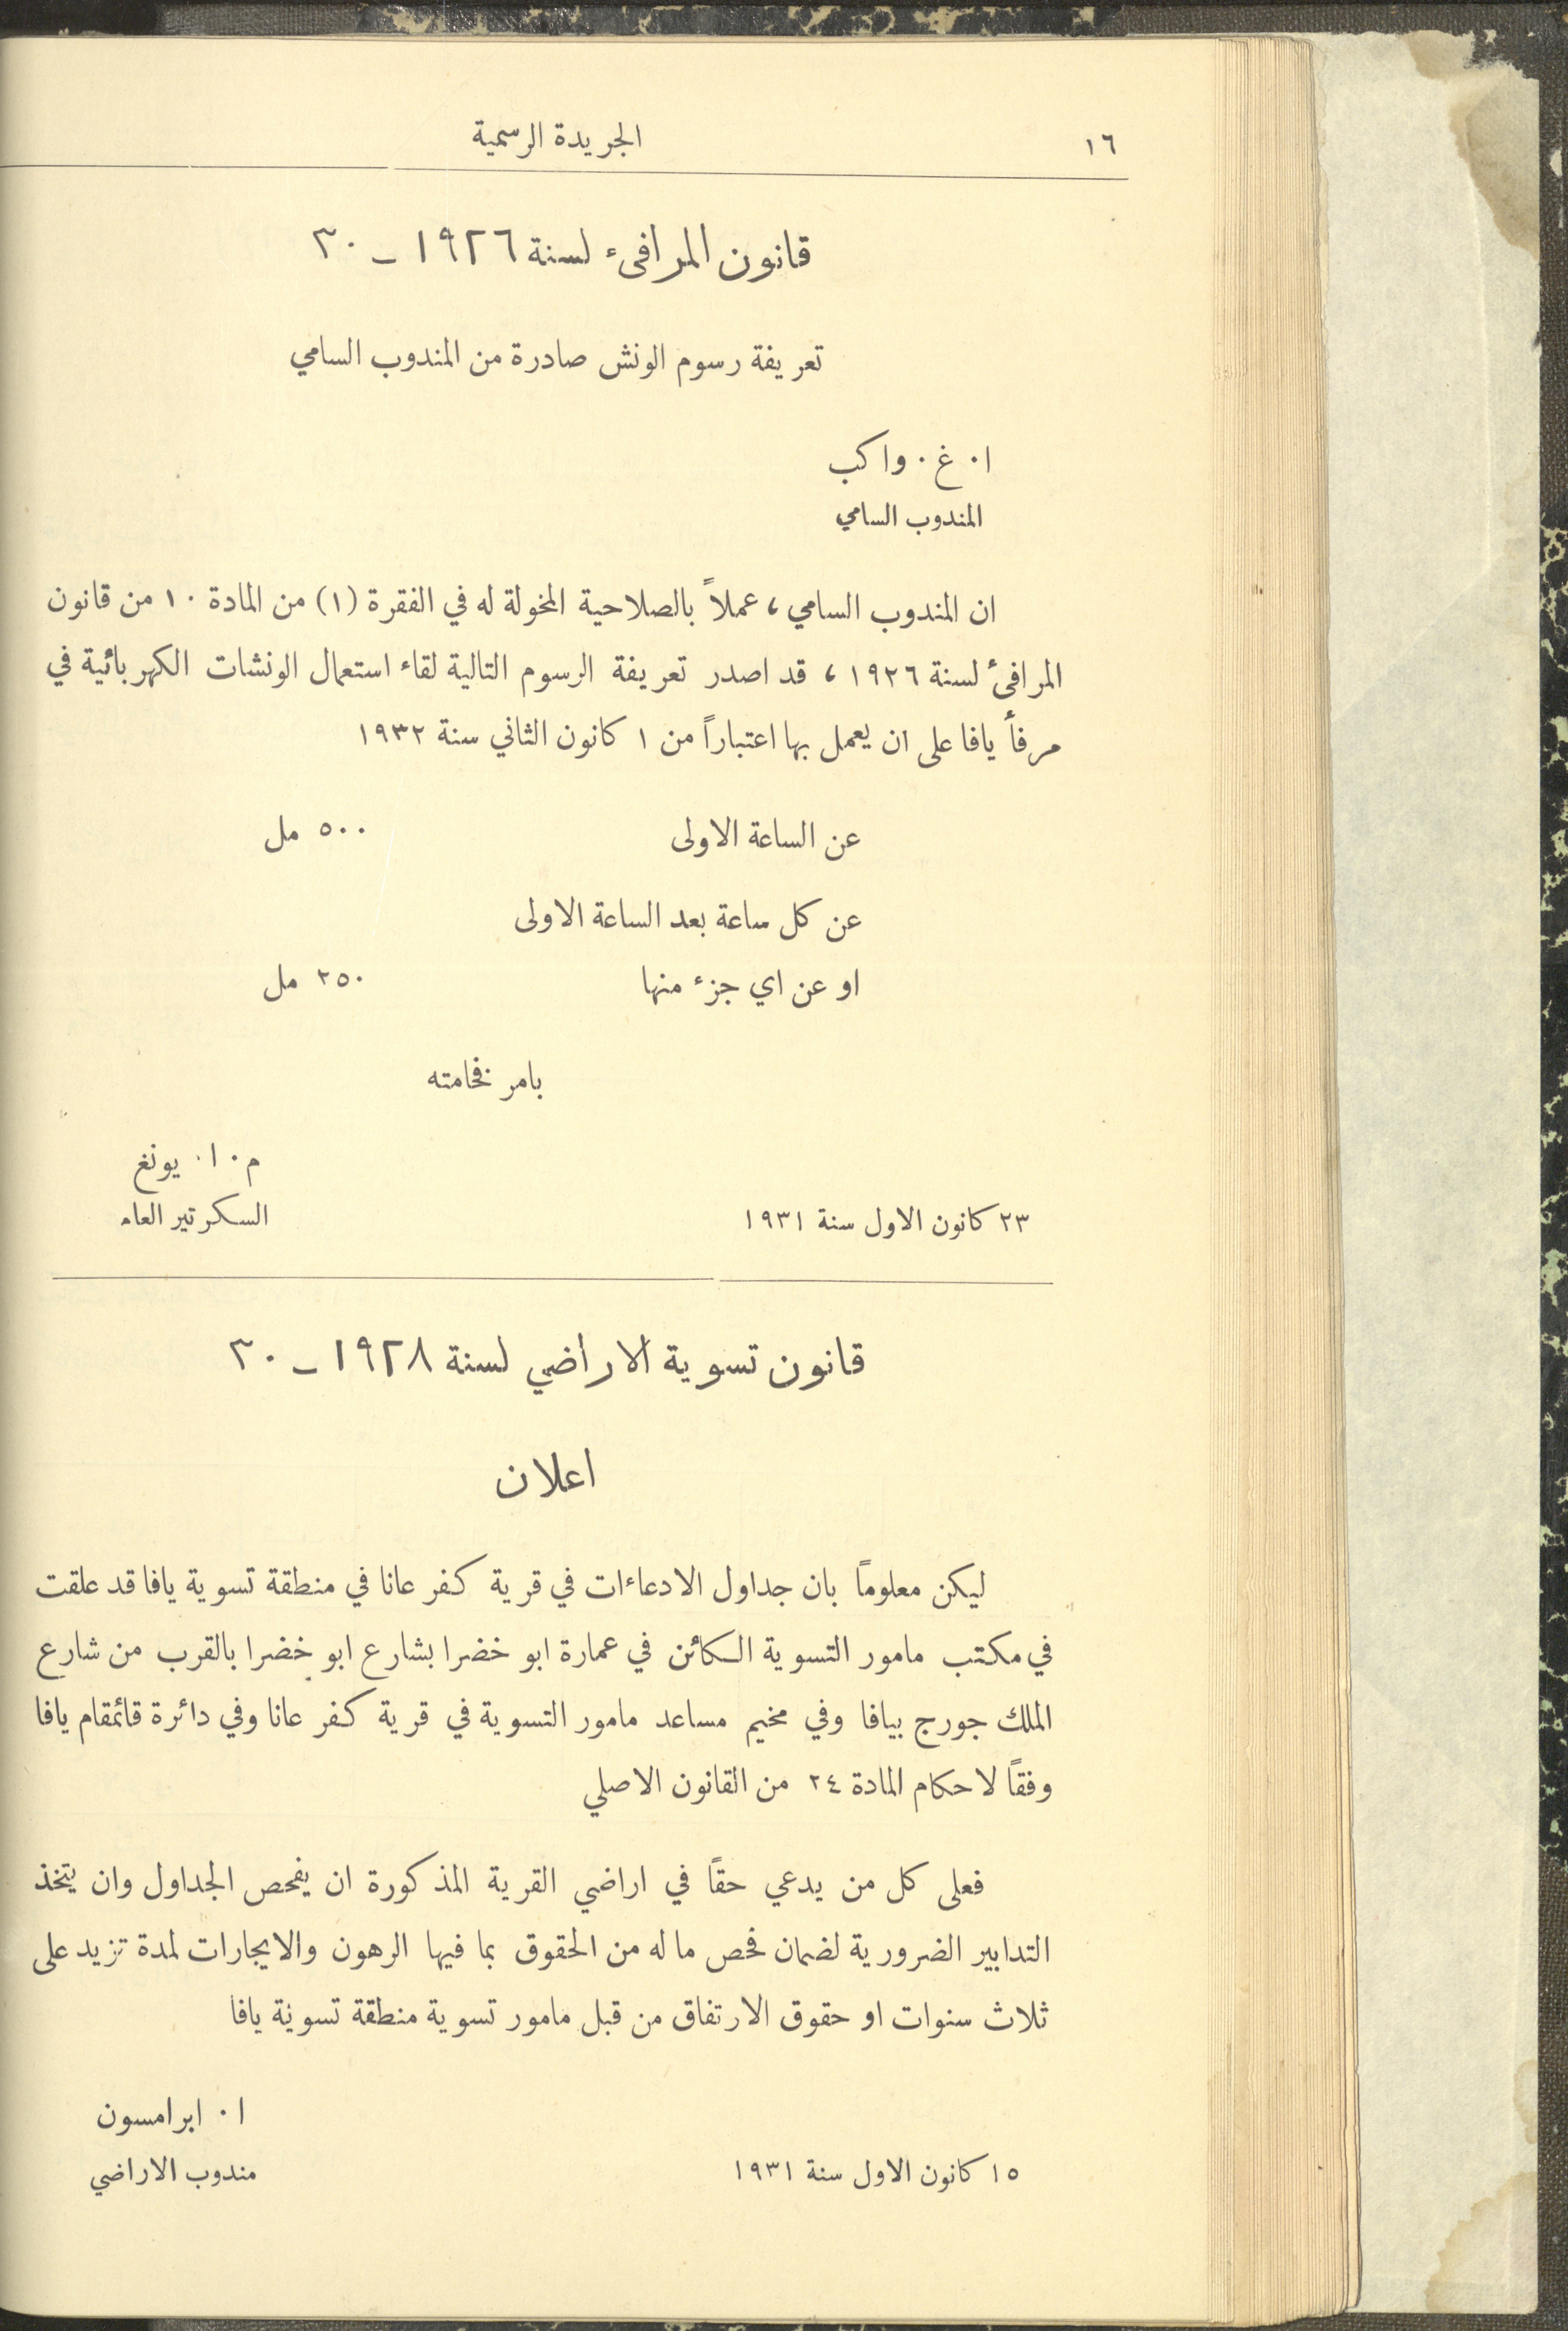 ١٦
الجريدة الرسمية
قانون المرافىء لسنة ١٩٢٦ - ٣٠
تعريفة رسوم الونش صادرة من المندوب السامي
ا. غ. واكب
المندوب السامي
ان المندوب السامي، عملاً بالصلاحية المخولة له في الفقرة (١) من المادة ١٠ من قانون
المرافئ لسنة ١٩٢٦، قد اصدر تعريفة الرسوم التالية لقاء استعمال الونشات الكهربائية في
مرفأ يافا على ان يعمل بها اعتباراً من ١ كانون الثاني سنة ١٩٣٢
عن الساعة الاولى ٥٠٠ مل
عن كل ساعة بعد الساعة الاولى
او عن اي جزء منها ٢٥٠ مل
بامر فخامته
م. ا. يونغ
السكرتير العام
٢٣ كانون الاول سنة ١٩٣١
قانون تسوية الاراضي لسنة ١٩٢٨ - ٣٠
اعلان
ليكن معلوماً بان جداول الادعاءات في قرية كفر عانا في منطقة تسوية يافا قد علقت
في مكتب مامور التسوية الكائن في عمارة ابو خضرا بشارع ابو خضرا بالقرب من شارع
الملك جورج بيافا وفي مخيم مساعد مامور التسوية في قرية كفر عانا وفي دائرة قائمقام يافا
وفقاً لاحكام المادة ٢٤ من القانون الاصلي
فعلى كل من يدعي حقاً في اراضي القرية المذكورة ان يفحص الجداول وان يتخذ
التدابير الضرورية لضمان فحص ما له من الحقوق بما فيها الرهون والايجارات لمدة تزيد على
ثلاث سنوات او حقوق الارتفاق من قبل مامور تسوية منطقة تسوية يافا
ا. ابرامسون
مندوب الاراضي
١٥ كانون الاول سنة ١٩٣١